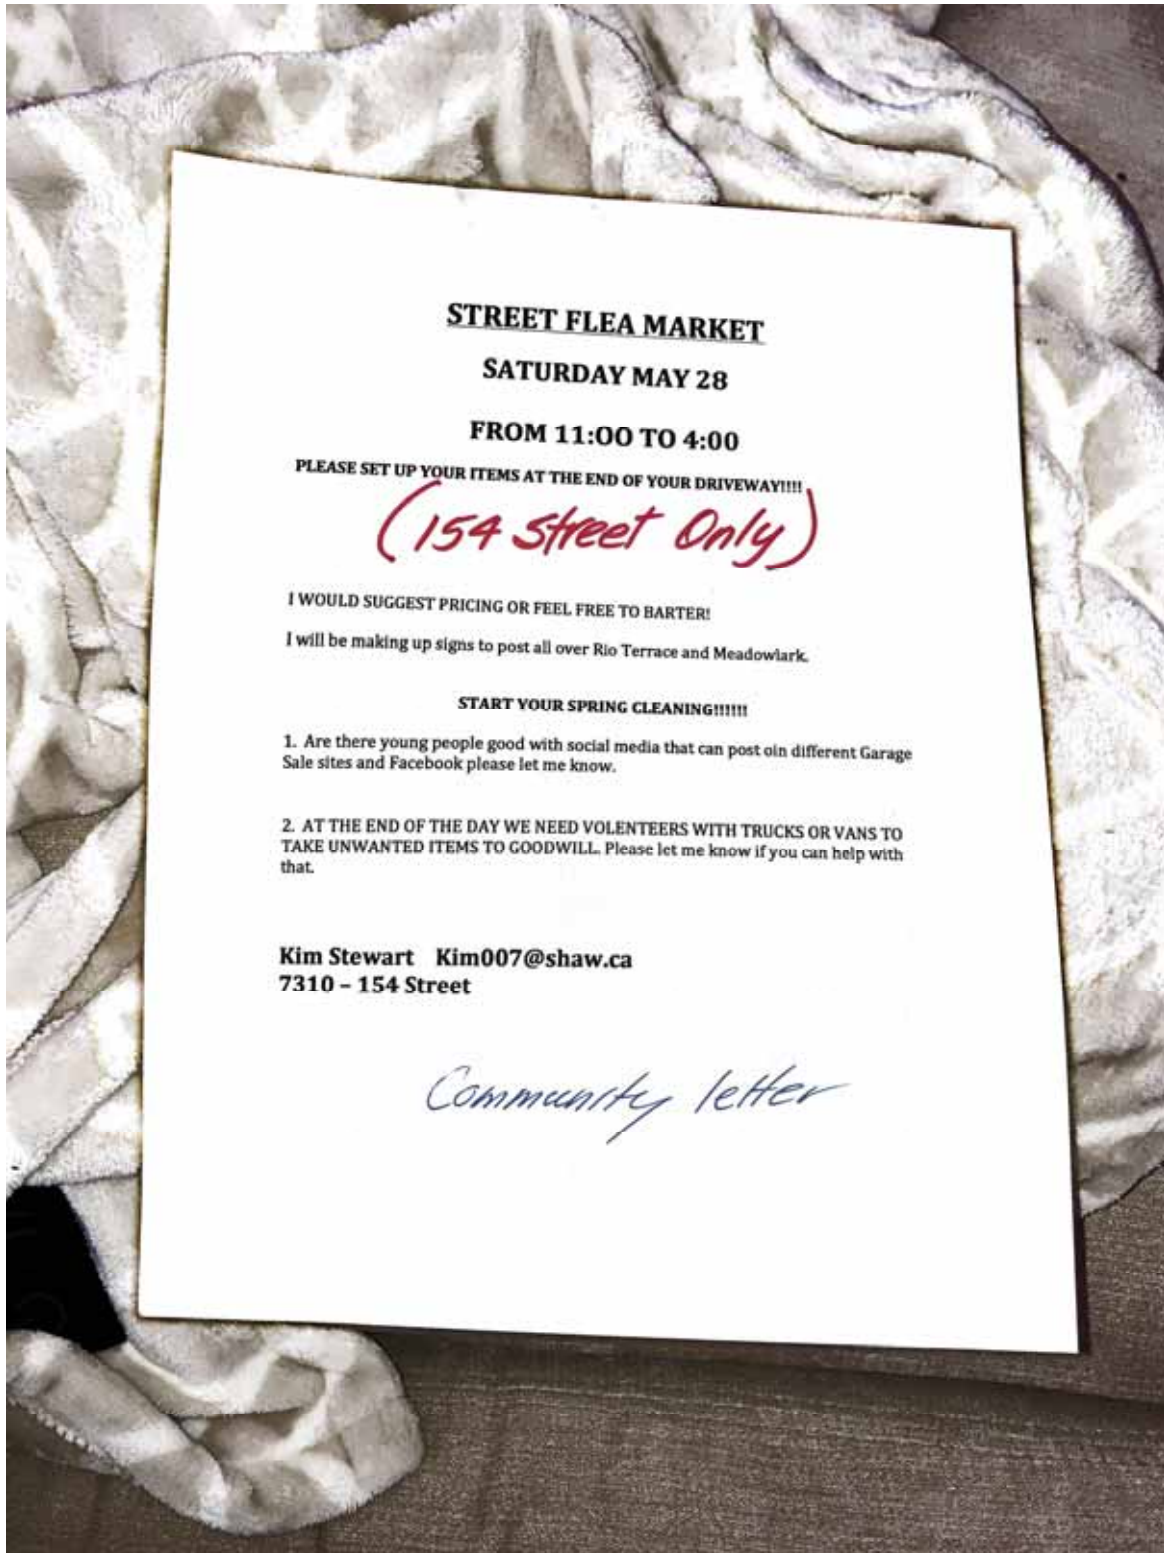 STREET FLEA MARKET
SATURDAY MAY 28
FROM 11:00 TO 4:00
PLEASE SET UP YOUR ITEMS AT THE END OF YOUR DRIVEWAY!!!!
(154 Street Only)
I WOULD SUGGEST PRICING OR FEEL FREE TO BARTER!
I will be making up signs to post all over Rio Terrace and Meadowlark.
START YOUR SPRING CLEANING!!!!!!
1. Are there young people good with social media that can post oin different Garage
Sale sites and Facebook please let me know.
2. AT THE END OF THE DAY WE NEED VOLENTEERS WITH TRUCKS OR VANS TO
TAKE UNWANTED ITEMS TO GOODWILL. Please let me know if you can help with
that.
Kim Stewart Kim007@shaw.ca
7310 – 154 Street
Community letter